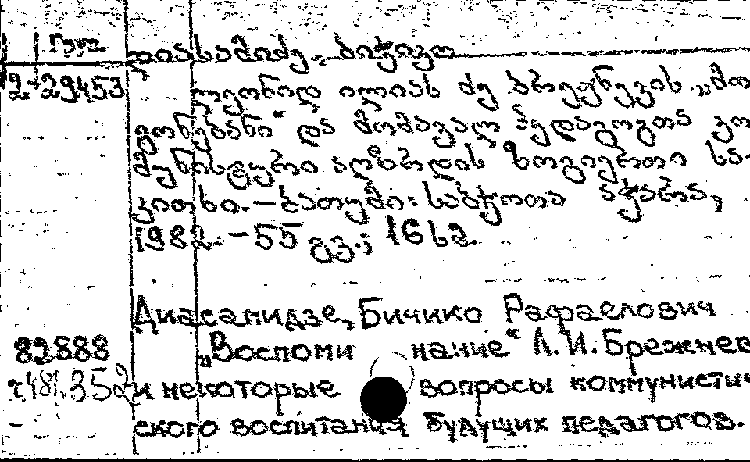 Груз
დიასამიძე, ბიჭიკო
2-29453
ლეონიდ ილიას ძე ბრეჟნევის „მო-
გონებანი“ და მომავალ პედაგოგთა კო-
მუნისტური აღზრდის ზოგიერთი სა-
კითხი. – ბათუმი: საბჭოთა აჭარა,
1982. – 55 გვ.; 16 სმ.
Диасамидзе, Бичико Рафаелович
82888
„Воспоминание“ Л. И. Брежнев
и некоторые вопросы коммунистич
ского воспитания будущих педагогов.